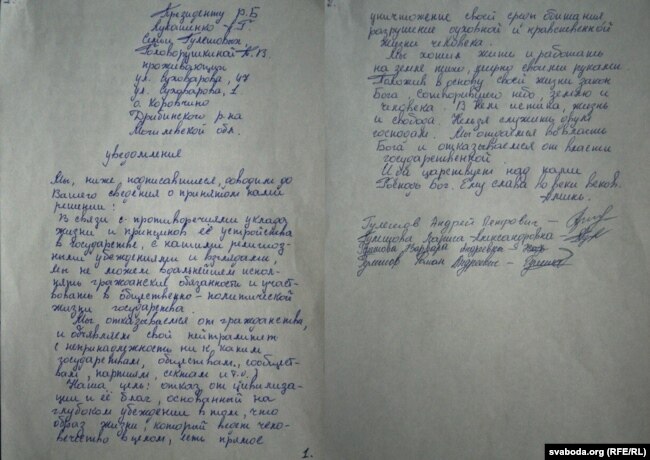 Президенту Р.Б
Лукашенко А.Г
Семьи Гулешовых
Головорушкиной К.В
проживающих
ул. Суховарова, 47
ул. Суховарова, 1
д. Коровчино
Дрибинского р-на
Могилевской обл.
уведомления
Мы, ниже, подписавшиеся, доводим до
Вашего сведения о принятом нами
решении:
В связи с противоречиями уклада
жизни и принципов её устройства
в государстве, с нашими религиоз-
ными убеждениями и взглядами,
мы не можем вдальнейшем испол-
нять гражданские обязанности и участ-
вовать в общественно-политической
жизни государства.
Мы отказываемся от гражданства,
и объявляем свой нейтралитет
с непринадлежность ни к каким
государствам, обществам, сообщест-
вам, партиям, сектам и т.д.)
Наша цель: отказ от цивилиза-
ции и её благ, основанный на
глубоком убеждении в том, что
образ жизни, который ведёт чело-
вечество в целом, есть прямое
1.
2.
уничтожение своей среды обитания
разрушие духовной и нравственной
жизни человека.
Мы хотим жить и работать
на земле тихо, мирно своими руками.
Положив в основу своей жизни закон
Бога, сотворившего небо, землю и
человека. В Нем истина, жизнь
и свобода. Нельзя служить двум
господам. Мы отдаемся во власть
Бога и отказываемся от власти
государственной.
И да царствует над нами
Господь Бог. Ему слава во веки веков.
Аминь.
Гулешов Андрей Петрович -
Гулешова Лариса Александровна -
Варвара Андреевна
Гулешов Роман Андреевич -
svaboda.org (RFE/RL)